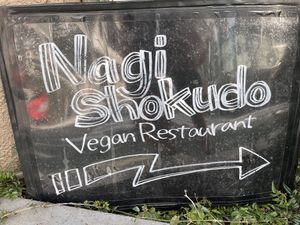 Nagi
Shokudo
Vegan Restaurant